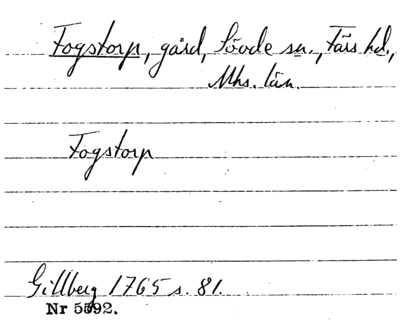 Fogstorp, gård, Sövde sn., Färs hd.,
Mhs. län.
Fogstorp
Gillberg 1765 s. 81.
Nr 5592.